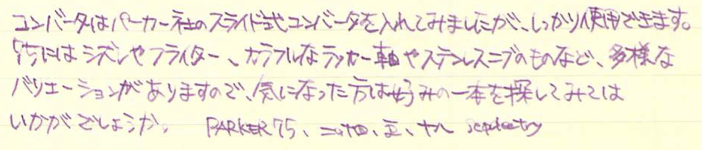 コンバータはパーカー社のスライド式コンバータを入れてみましたが、しっかり使用できます。
他にはシズレやフライター、カラフルなラッカー軸やステンレスニブのものなど、多様な
バリエーションがありますので、気になった方は好みの一本を探してみては
いかがでしょうか。 PARKER 75、